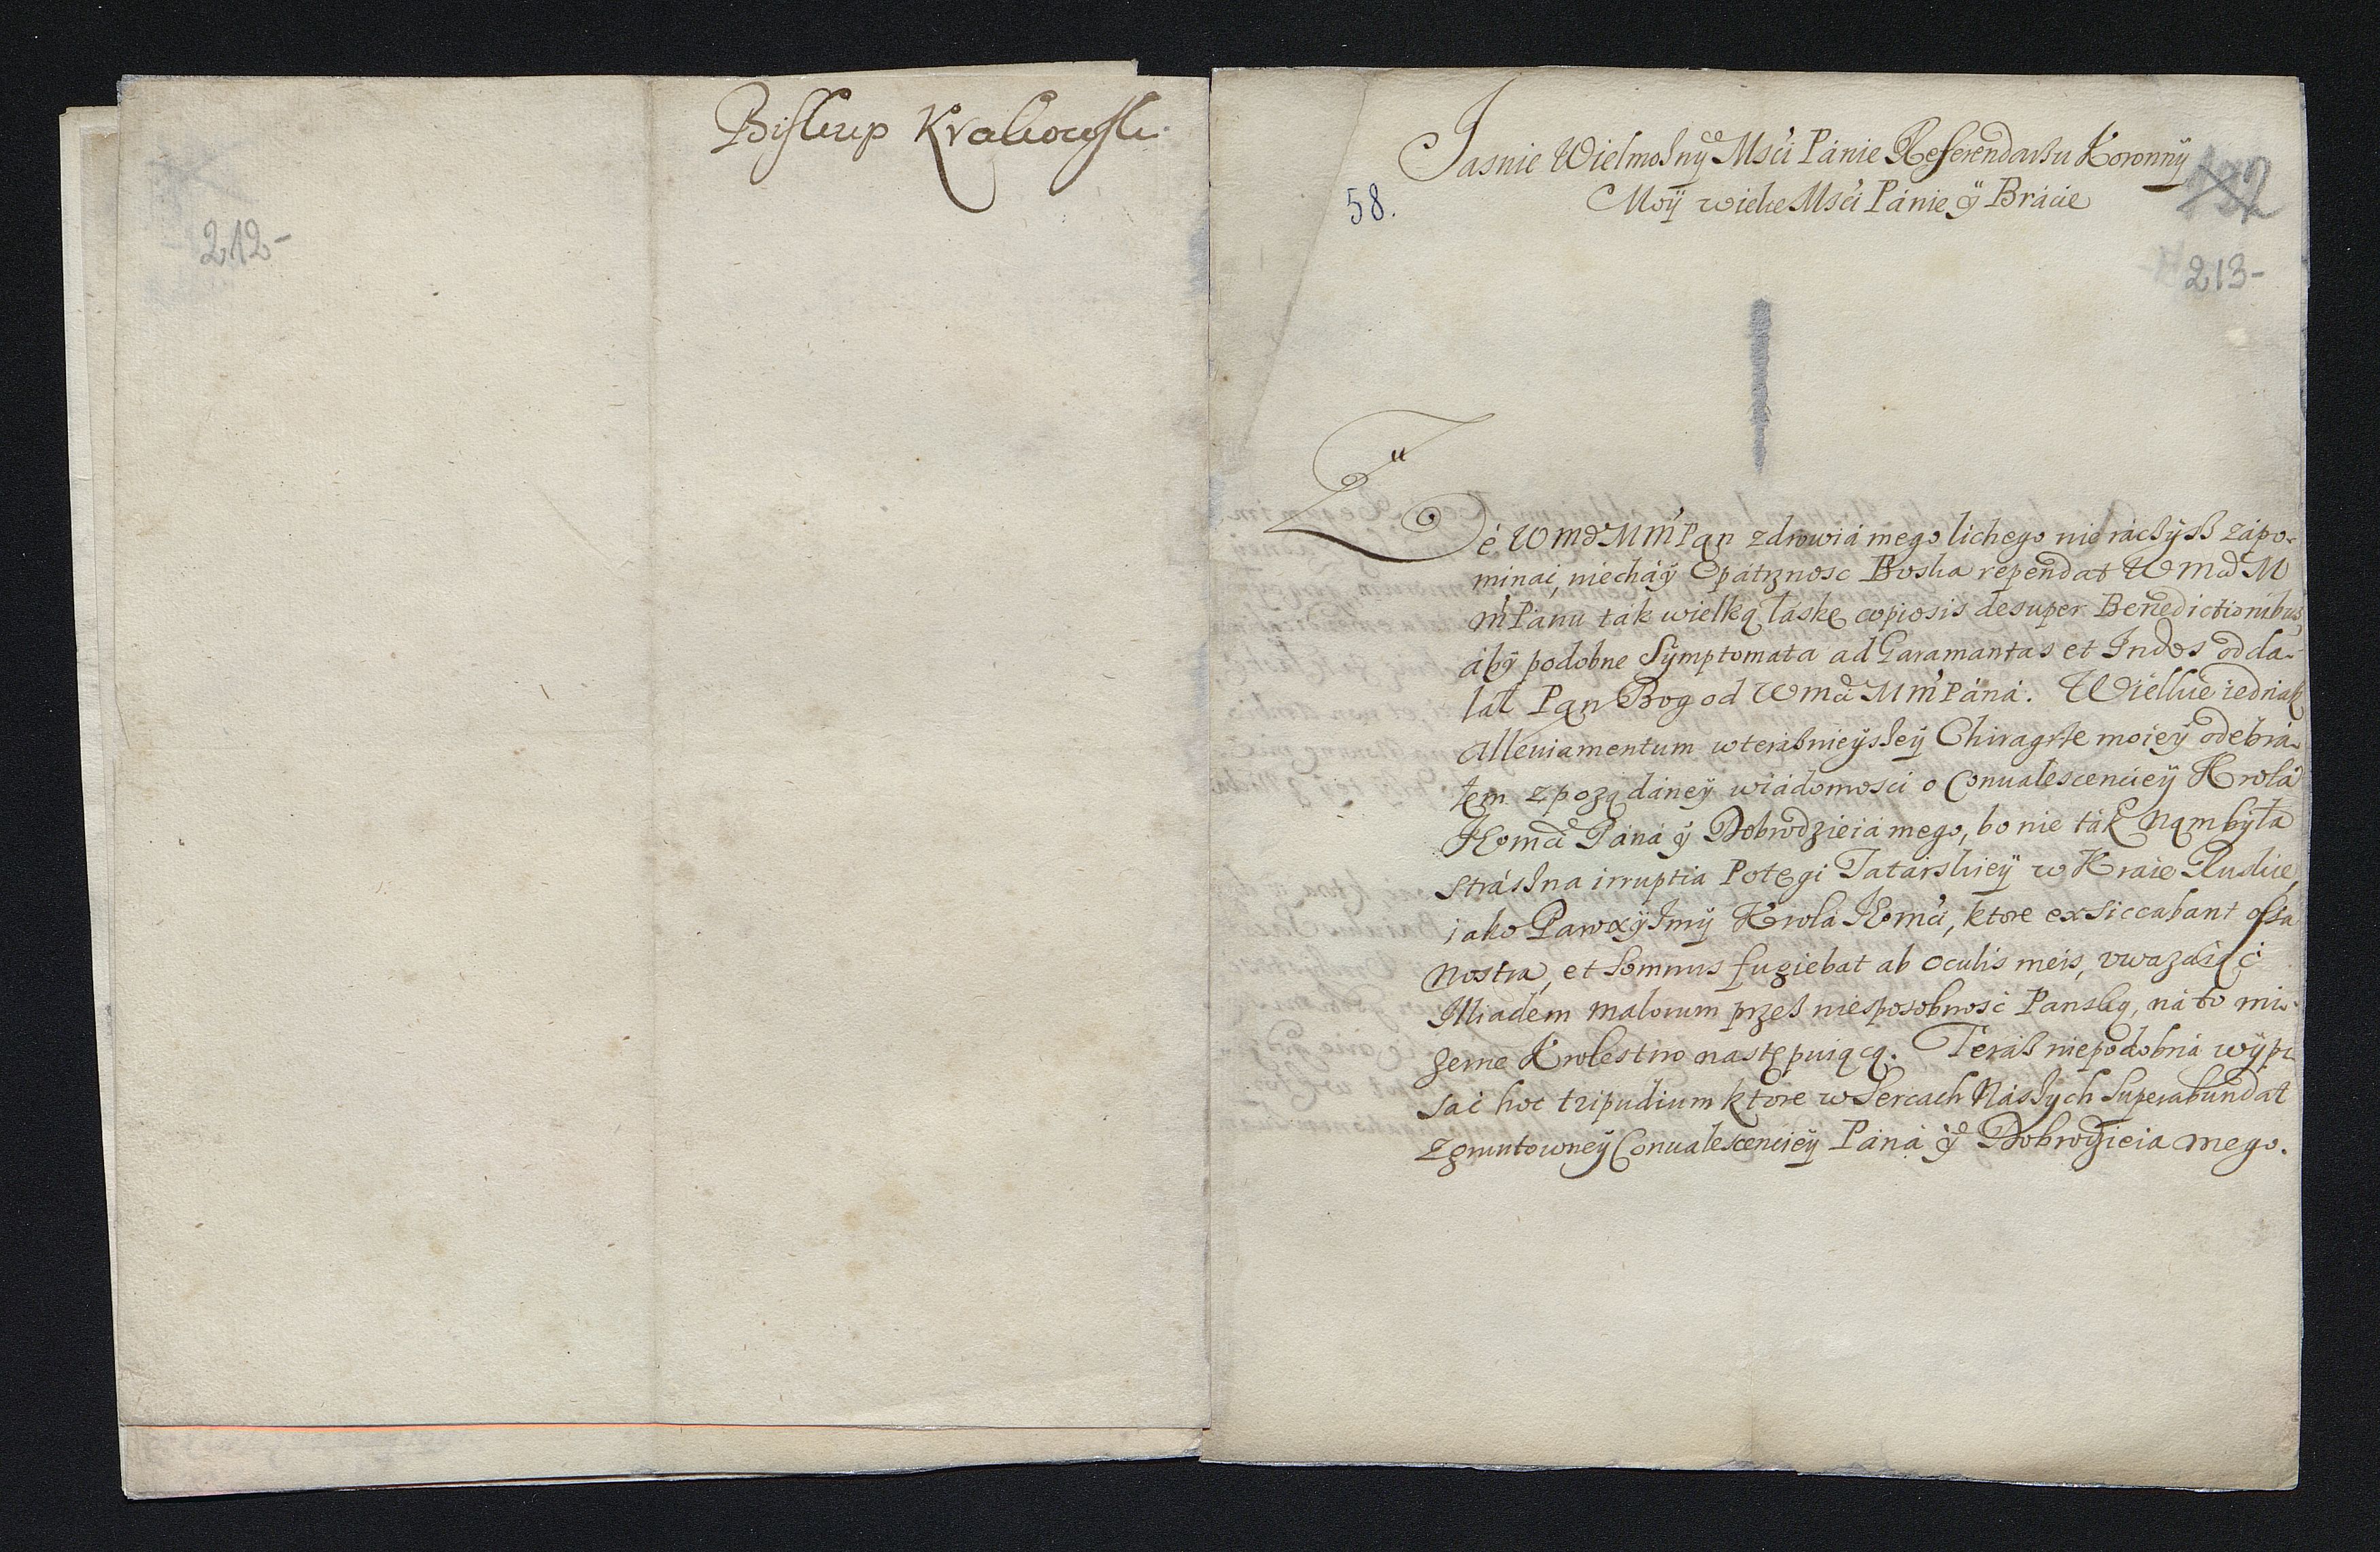 Biskup Krakowsk.
212-
Jasnie Wielmożnÿ Msći Pánie Referendarßu Koronnÿ
Moÿ wielce Msći Pánie ÿ Bráćie
58.
132
213-
Że WmćMMPan zdrowiá mego lichego nie racżÿsß zápo-
mináć, niecháÿ Opátrznosc Boska rependat Wmći M
MPanu ták wielką láskę copiosis desuper Benedictionibus,
ábÿ podobne Sÿmptomata ad Garamantas et Indos odda-
lał Pan Bog od Wmći MMPáná. Wielkie iednak
Alleuiamentum w teráßnieÿszeÿ Chiragrze moieÿ odebrá-
łem z pożądáneÿ wiádomosci o Conualescencieÿ Krolá
JKomći Páná ÿ Dobrodzieiá mego, bo nie ták Nąm bÿłá
strászna irruptia Potęgi Tatárskieÿ w Kráie Ruskie,
iako Paroxÿzmÿ Krolá JKomći, ktore exsiccabant ossa
nostra, et somnus fugiebat ab oculis meis, vwazáiąć
Illiadem malorum przeß niesposobnosć Panską, ná to mi-
zerne Krolestwo następuiącą. Teráß niepodobna wÿpi-
sać hoc tripudium ktore w Sercach Nászÿch superabundat
z gruntowneÿ Conualescencieÿ Páná ÿ Dobrodzieia mego.